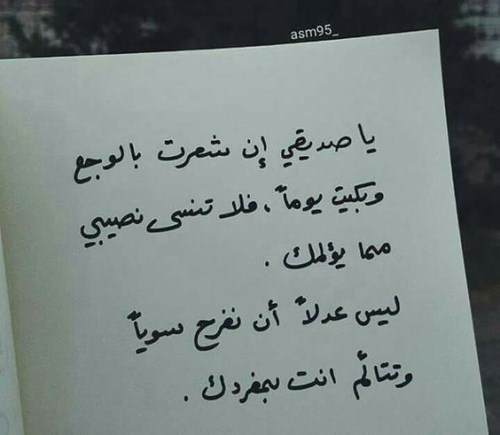 asm95_
يا صديقي إن شعرت بالوجع
وبكيت يوماً، فلا تنسى نصيبي
مما يؤلمك .
ليس عدلاً أن نفرح سوياً
وتتألّم انت بمفردك .